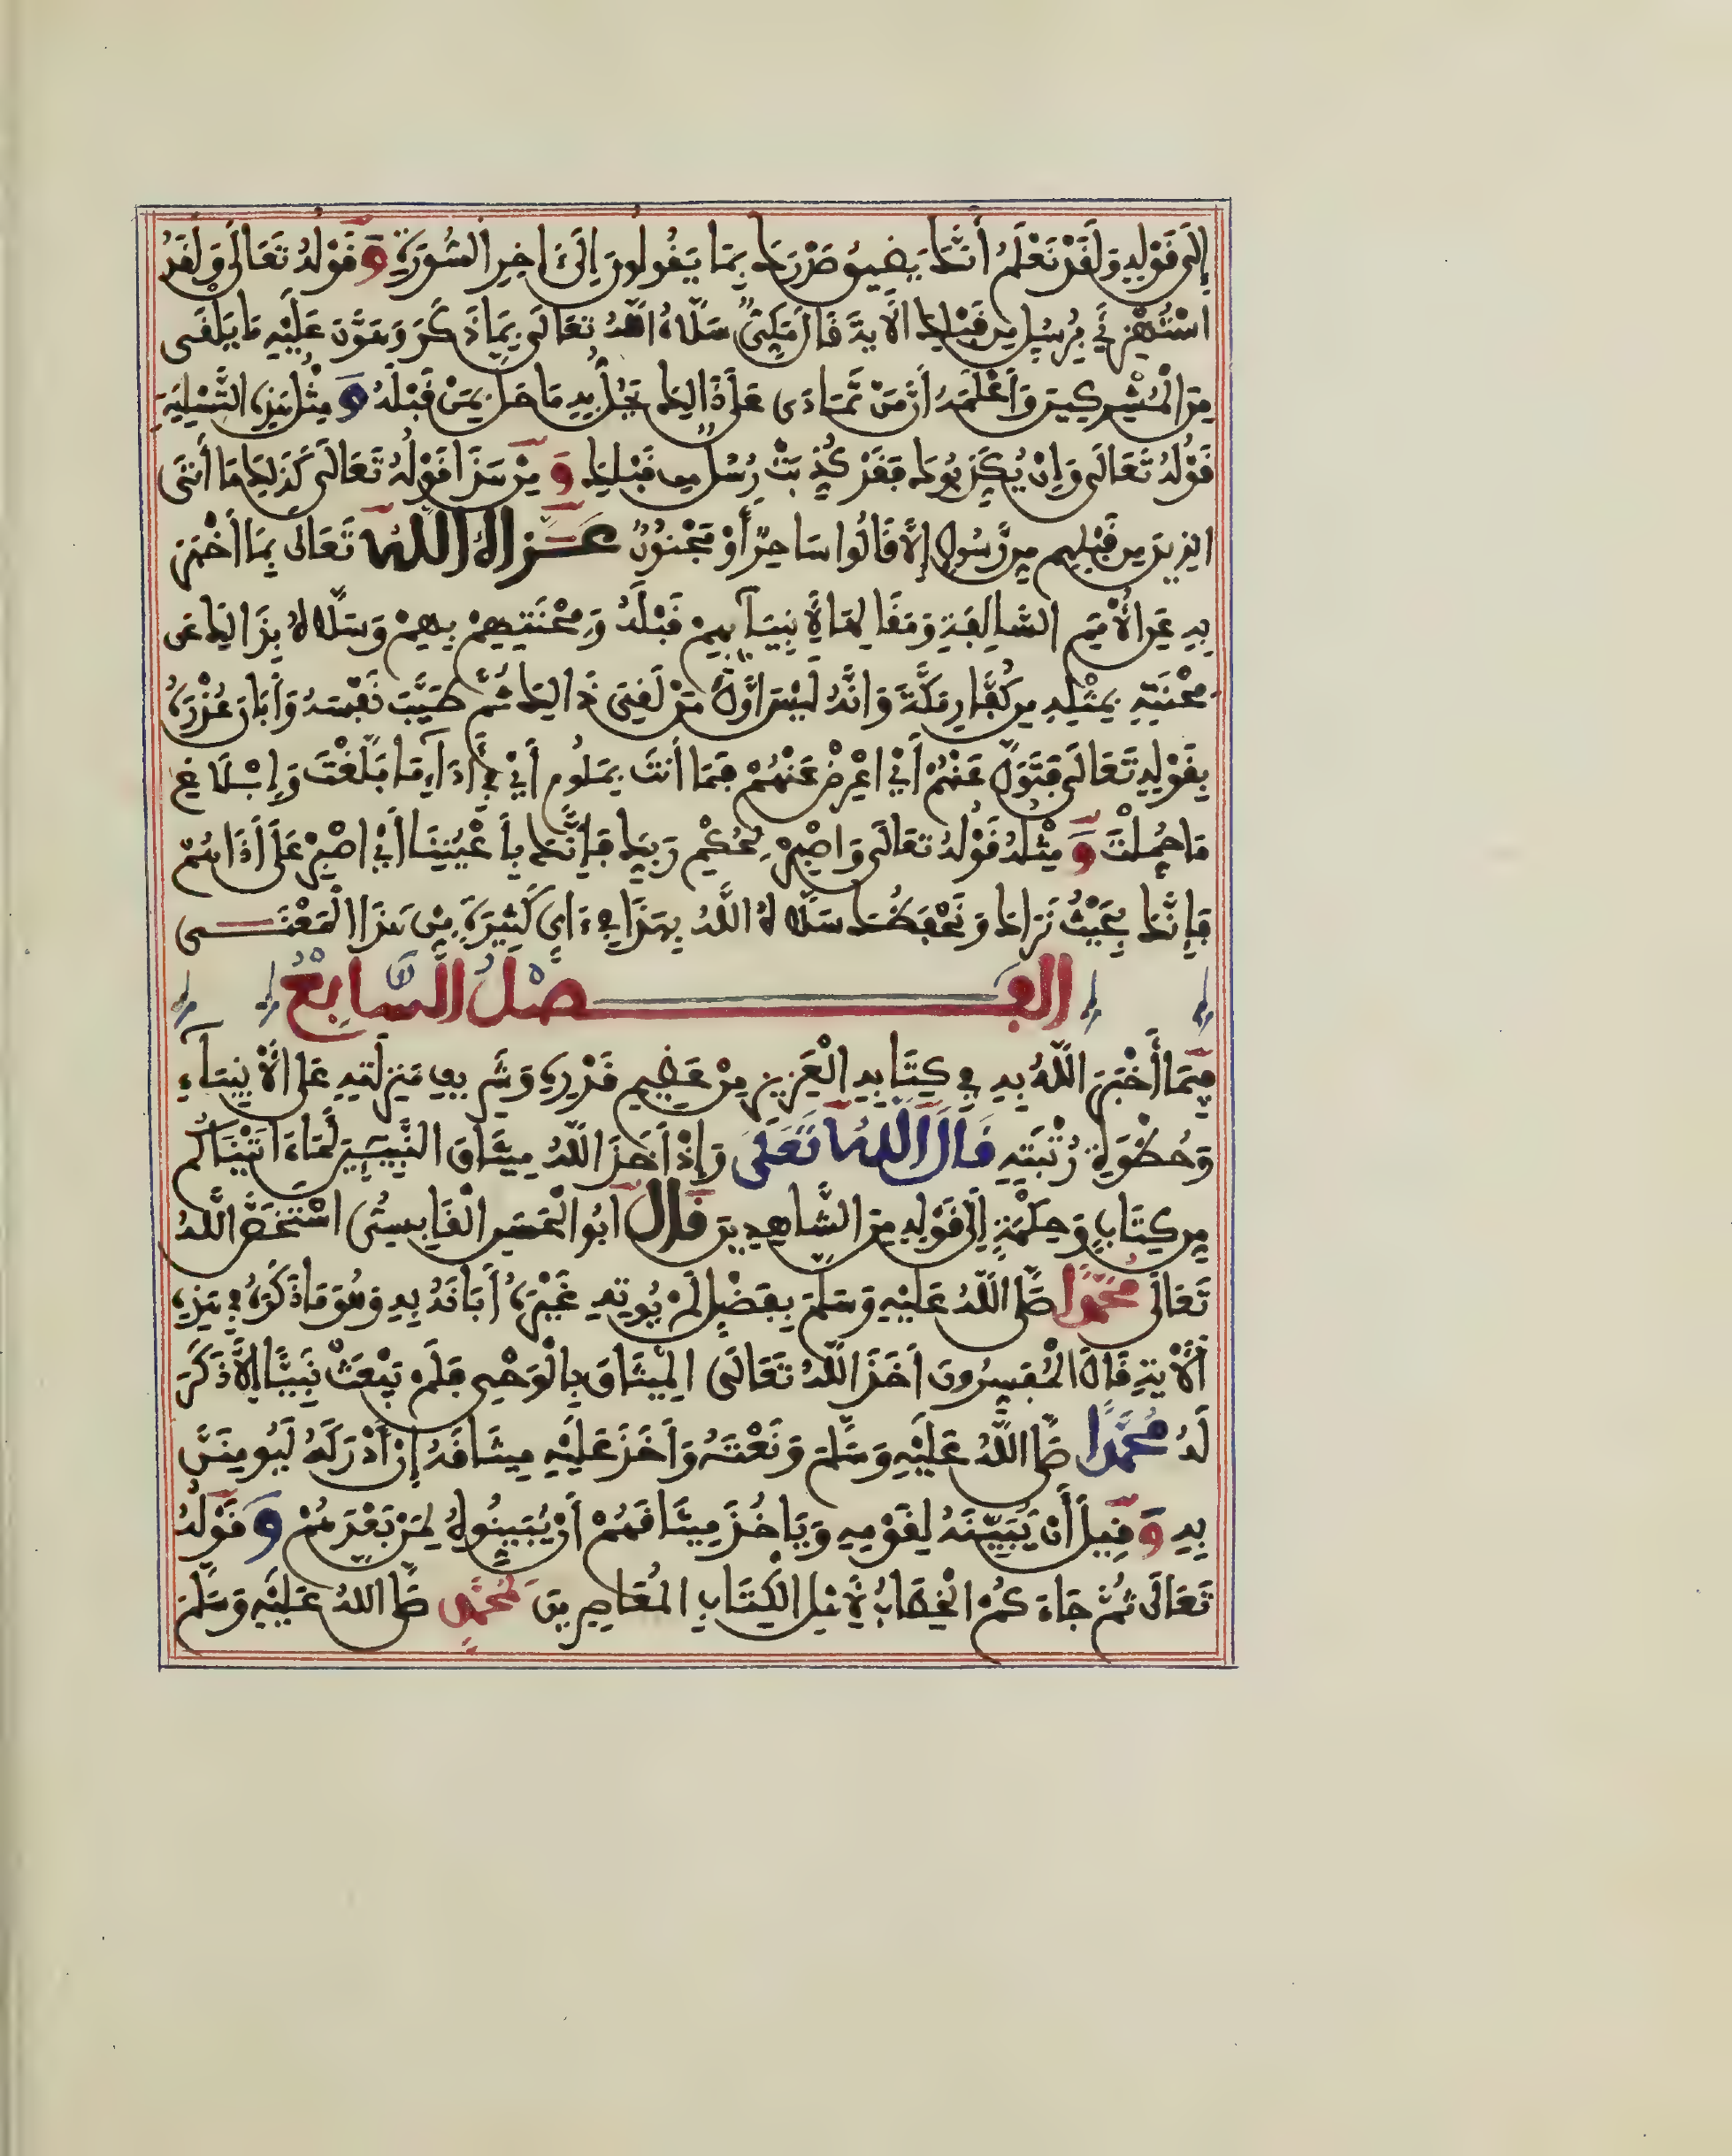 إِلَى قَوْلِهِ وَلَقَدْ نَعْلَمُ أَنَّكَ يَضِيقُ صَدْرُكَ بِمَا يَقُولُونَ إِلَىٰ ءَاخِرِ السُّورَةِ وَقَوْلُهُ تَعَالَى وَلَقَدُ
اسْتُهْزِئَ بِرُسُلٍ مِن قَبْلِكَ الآيةَ قَالَ مَكِّيٌّ سَلَّاهُ اللَّهُ تَعَالَى بِمَا ذَكَرَ وَهَوَّنَ عَلَيْهِ مَا يَلْقَى
مِنَ الْمُشْرِكِينَ وَأَعْلَمَهُ أَنَّ مَنْ تَمَادَى عَلَى ذَلِكَ يَحُلُّ بِهِ مَا حَلَّ بِمَنْ قَبْلَهُ وَمِثْلُ هَذِهِ التَّسْلِيَةِ
قَوْلُهُ تَعَالَى وَإِنْ يُكَذِّبُوكَ فَقَدْ كُذِّبَتْ رُسُلٌ مِن قَبْلِكَ وَمِنْ هَذَا قَوْلُهُ تَعَالَى كَذَلِكَ مَا أَتَى
الذِينَ مِن قَبْلِهِم مِن رَّسُولٍ إِلَّا قَالُوا سَاحِرٌ أَوْ مَجْنُونٌ عَزَّاهُ اللَّهُ تَعَالَى بِمَا أَخْبَرَ
بِهِ عَنِ الْأُمَمِ السَّالِفَةِ وَمَقَالِهَا لِأَنْبِيَآئِهِمْ قَبْلَهُ وَمِحْنَتِهِمْ بِهِمْ وَسَلَّاهُ بِذَالِكَ عَن
مِحْنَتِهِ بِمِثْلِهِ مِن كُفَّارِ مَكَّةَ وَأَنَّهُ لَيْسَ أَوَّلَ مَنْ لَقِيَ ذَالِكَ ثُمَّ طَيَّبَ نَفْسَهُ وَأَبَانَ عُذْرَهُ
بِقَوْلِهِ تَعَالَى فَتَوَلَّ عَنْهُمْ أَيْ اعْرِضْ عَنْهُمْ فَمَا أَنتَ بِمَلُومٍ أَيْ فِي أَدَآءِ مَا بَلَّغْتَ وَإِبْلَاغِ
مَا حُمِّلْتَ وَمِثْلُهُ قَوْلُهُ تَعَالَى وَاصْبِرْ لِحُكْمِ رَبِّكَ فَإِنَّكَ بِأَعْيُنِنَا أَيْ اصْبِرْ عَلَى أَذَاهُمْ
فَإِنَّكَ بِحَيْثُ نَرَاكَ وَنَحْفَظُكَ سَلَّاهُ اللَّهُ بِهَذَا فِي ءَايٍ كَثِيرَةٍ مِنْ هَذَا الْمَعْنَى
الْفَصْلُ السَّابِعُ
فِيمَا أَخْبَرَ اللَّهُ بِهِ فِي كِتَابِهِ الْعَزِيزِ مِنْ عَظِيمِ قَدْرِهِ وَشَرِيفِ مَنْزِلَتِهِ عَلَى الْأَنْبِيَآءِ
وَحُظْوَةِ رُتْبَتِهِ قَالَ اللَّهُ تَعَلَى وَإِذْ أَخَذَ اللَّهُ مِيثَاقَ النَّبِيِّينَ لَمَا ءَاتَيْنَاكُم
مِن كِتَابٍ وَحِكْمَةٍ إِلَى قَوْلِهِ مِنَ الشَّاهِدِينَ قَالَ ابُو الْحَسَنِ الْقَابِسِيُّ اسْتَخَصَّ اللَّهُ
تَعَالَى مُحَمَّدًا صَلَّى اللَّهُ عَلَيْهِ وَسَلَّمَ بِفَضْلٍ لَمْ يُوتِهِ غَيْرَهُ أَبَانَهُ بِهِ وَهُوَ مَا ذَكَرَهُ فِي هَذِهِ
الْآيَةِ قَالَ الْمُفَسِّرُونَ أَخَذَ اللَّهُ تَعَالَى الْمِيثَاقَ بِالْوَحْيِ فَلَمْ يَبْعَثْ نَبِيًّا إِلَّا ذَكَرَ
لَهُ مُحَمَّدًا صَلَّى اللَّهُ عَلَيْهِ وَسَلَّمَ وَنَعْتَهُ وَأَخَذَ عَلَيْهِ مِيثَاقَهُ إِنْ أَدْرَكَهُ لَيُومِنَنَّ
بِهِ وَقِيلَ أَنْ يُبَيِّنَهُ لِقَوْمِهِ وَيَاخُذَ مِيثَاقَهُمْ أَنْ يُبَيِّنُوهُ لِمَنْ بَعْدَهُمْ وَقَوْلُهُ
تَعَالَى ثُمَّ جَاءَكُمْ الْخِطَابُ لِأَهْلِ الْكِتَابِ الْمُعَاصِرِينَ لِمُحَمَّدٍ صَلَّى اللَّهُ عَلَيْهِ وَسَلَّمَ